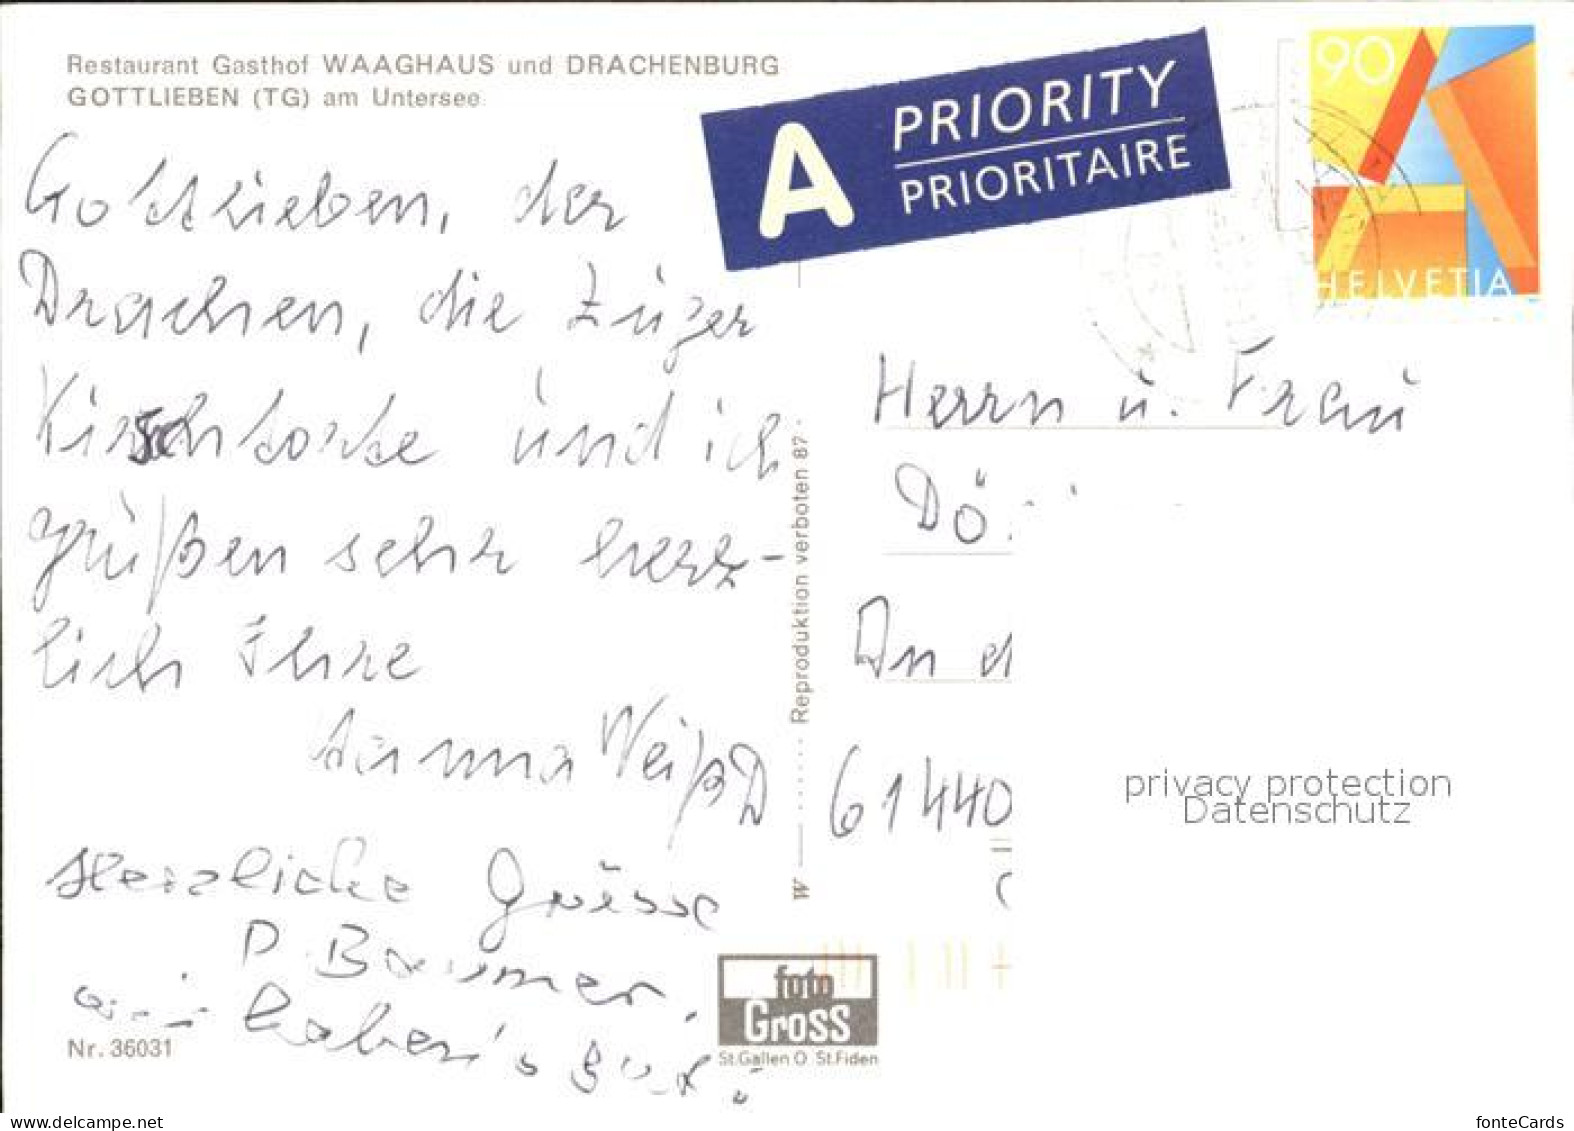 Restaurant Gasthof WAAGHAUS und DRACHENBURG
GOTTLIEBEN (TG) am Untersee
Gottlieben, der
Drachen, die Zuger
Kirschtorte und ich
grüßen sehr herz-
lich Ihre
Hanna Weiß
Herzliche Grüsse
P. Baumer,
wir haben's gut.
Nr. 36031
A PRIORITY
PRIORITAIRE
90
A
HELVETIA
Herrn u. Frau
Dö
D 61440
W Reproduktion verboten 87
foto
Gross
St.Gallen O St.Fiden
privacy protection
Datenschutz
www.delcampe.net
fonteCards